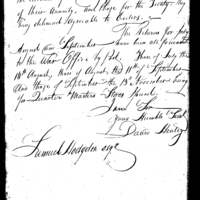 their Annuity, and those for the Treaty they
my delivered Agreeable to Orders.
The Returns for July
August and September have been all forwarded
to the War Office by Post. Those of July the
14th August, those of August the 11th of September
And those of September the 13th November being
Qr Quarter Masters Stores Hand.
I am Sir
Your Humble Servt
David Henley
Samuel Hodgdon Esqr